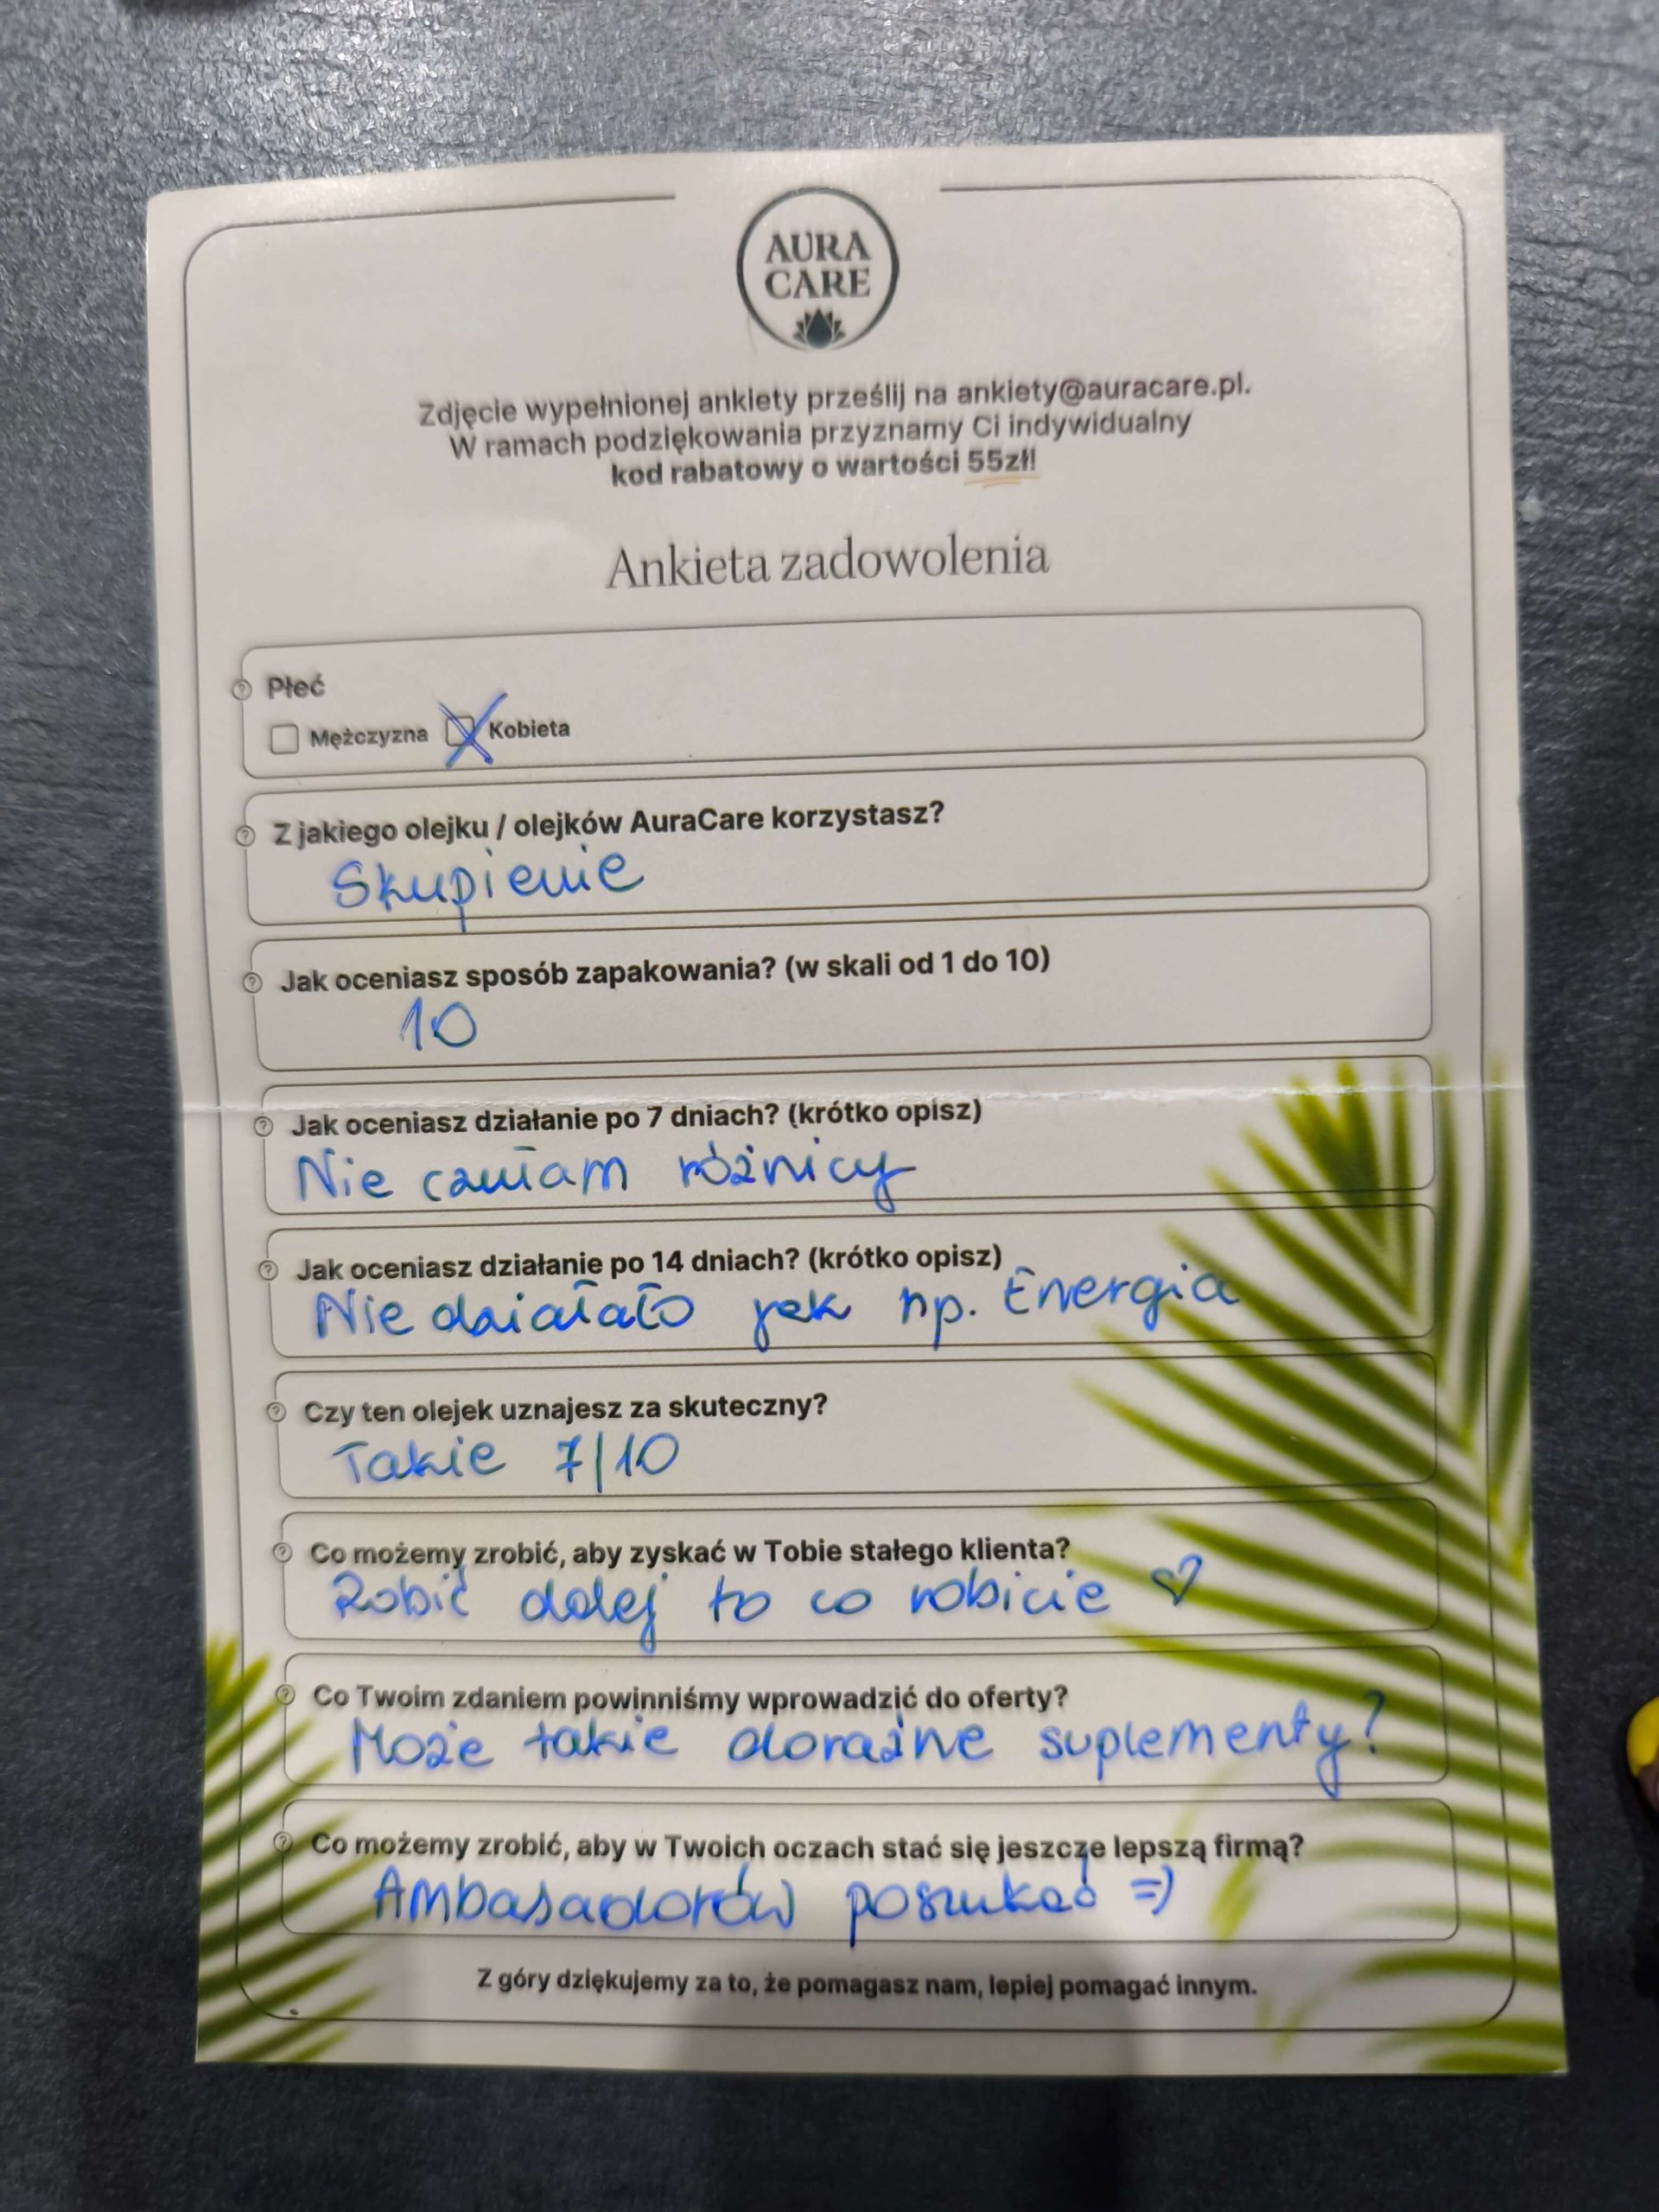 AURA
CARE
Zdjęcie wypełnionej ankiety prześlij na ankiety@auracare.pl.
W ramach podziękowania przyznamy Ci indywidualny
kod rabatowy o wartości 55zł!
Ankieta zadowolenia
Płeć
Mężczyzna Kobieta
Z jakiego olejku / olejków AuraCare korzystasz?
Skupienie
Jak oceniasz sposób zapakowania? (w skali od 1 do 10)
10
Jak oceniasz działanie po 7 dniach? (krótko opisz)
Nie czułam różnicy
Jak oceniasz działanie po 14 dniach? (krótko opisz)
Nie działało jak np. Energia
Czy ten olejek uznajesz za skuteczny?
Takie 7/10
Co możemy zrobić, aby zyskać w Tobie stałego klienta?
Robić dalej to co robicie ♡
Co Twoim zdaniem powinniśmy wprowadzić do oferty?
Może takie doraźne suplementy?
Co możemy zrobić, aby w Twoich oczach stać się jeszcze lepszą firmą?
Ambasadorów poszukać =)
Z góry dziękujemy za to, że pomagasz nam, lepiej pomagać innym.